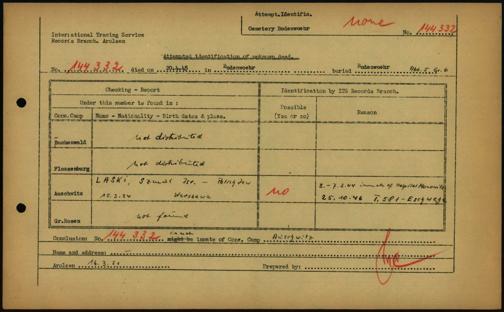 Attempt.Identific.
none
Cemetery Bodenwoehr
No. 144332
International Tracing Service
Records Branch. Arolsen
Attempted identification of unknown dead.
No. 144332 died on 20.4.45 in Bodenwoehr buried Abt.5 Gr.6
Checking - Report
Identification by ITS Records Branch.
Under this number is found is :
Possible (Yes or no)
Reason
Conc.Camp Name - Nationality - Birth dates & place.
Buchenwald not distributed
Flossenburg not distributed
Auschwitz LASKI, Szmul Isr. -
15.2.24 Warszawa
no
2.-7.2.44 inmate of Hospital Monowitz
25.10.46 T.581-Eschwege
Gr.Rosen not found
Conclusion: No. 144332 might be inmate of Conc. Camp Auschwitz
Name and address:
Arolsen 14.3.51 Prepared by: